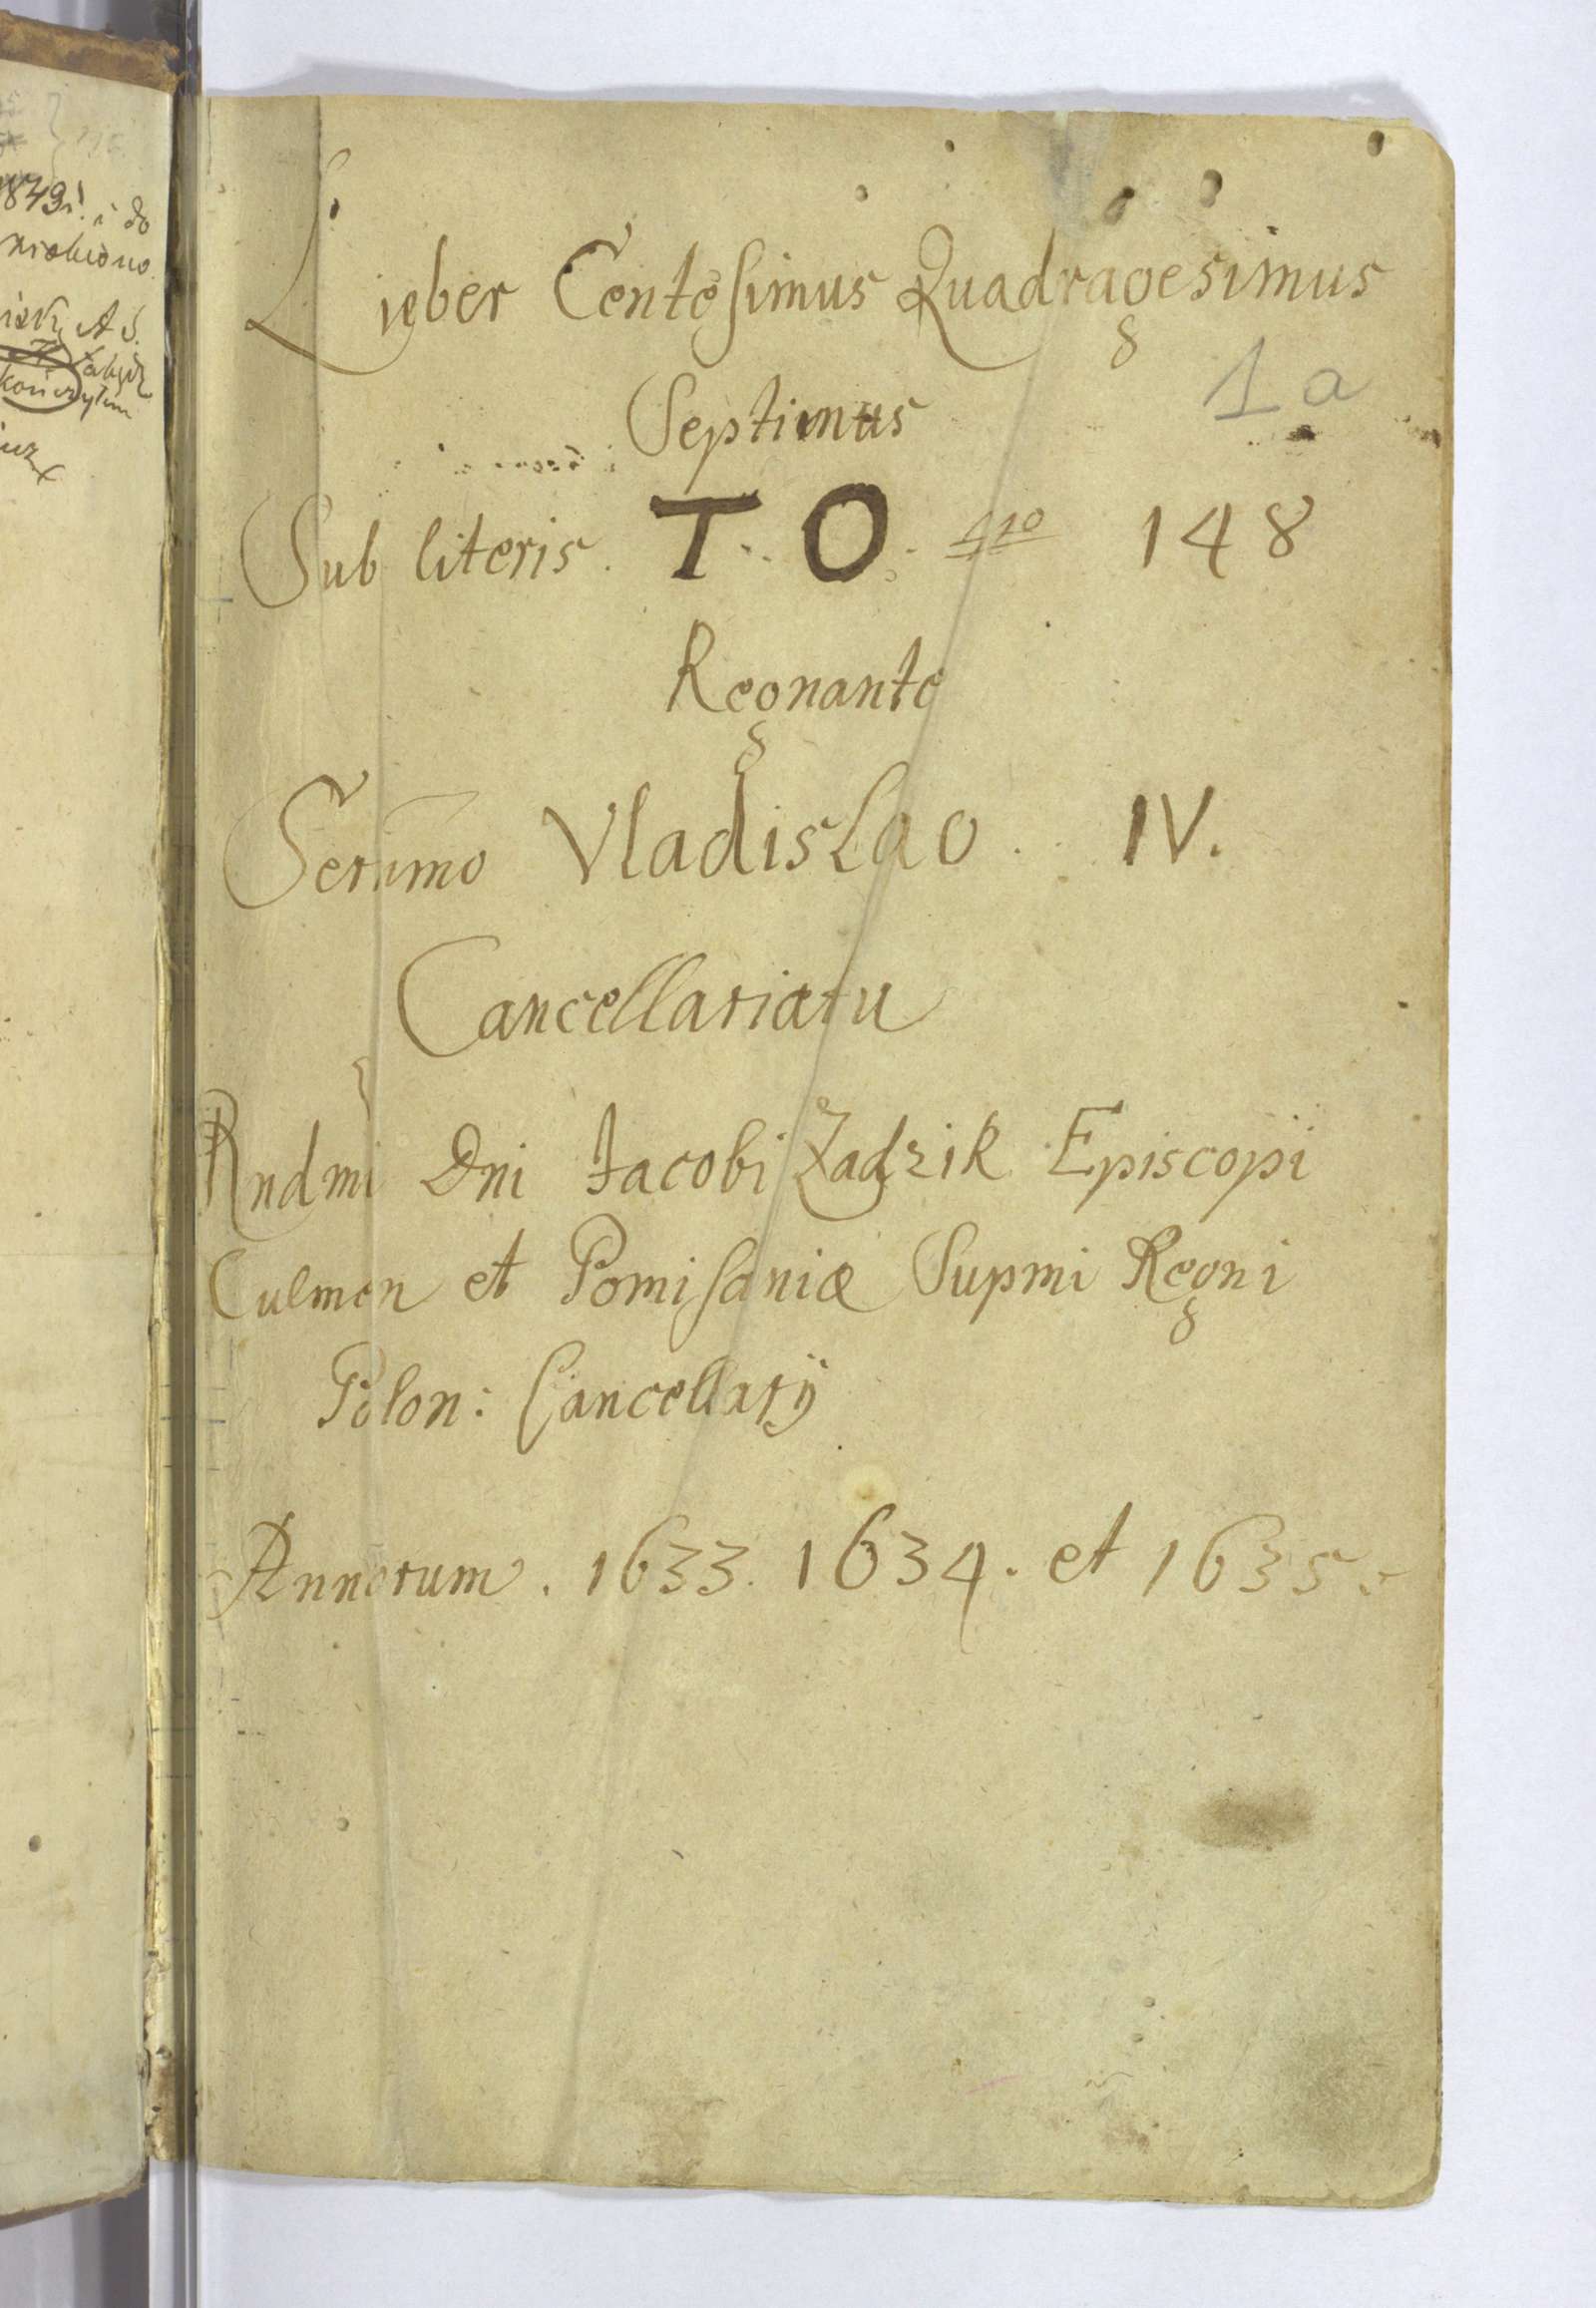 1849
do
Liber Centesimus Quadragesimus
1a
Septimus
Sub literis. T. O. N<sup>ro</sup> 148
Regnante
Serenmo Vladislao IV.
Cancellariatu
Rndmi Dni Jacobi Zadzik Episcopi
Culmen et Pomisaniæ Supmi Regni
Polon: Cancellarÿ
Annorum. 1633. 1634. et 1635.